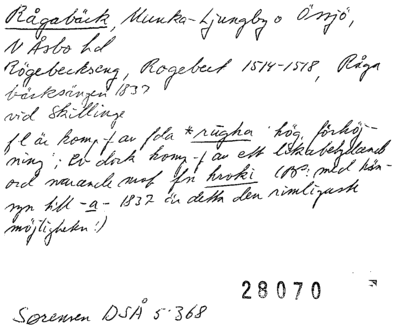 Rågabäck, Munka-Ljungby o Össjö,
N Åsbo hd
Rögebeckseng, Rogebeck 1514-1518, Råga
bäcksängen 1837
vid Skillinge
fl är komp.f av fda *rūgha 'hög, förhöj-
ning'; ev dock komp.f av ett likabetydande
ord narande mot fn hroki (OBS: med hän-
syn till -a- 1837 är detta den rimligaste
möjligheten!)
28070
Sørensen DSÅ 5:368